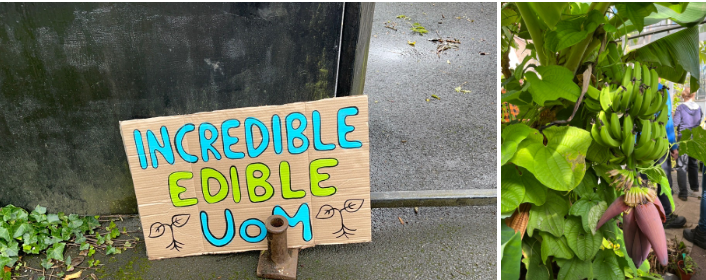 INCREDIBLE
EDIBLE
UoM